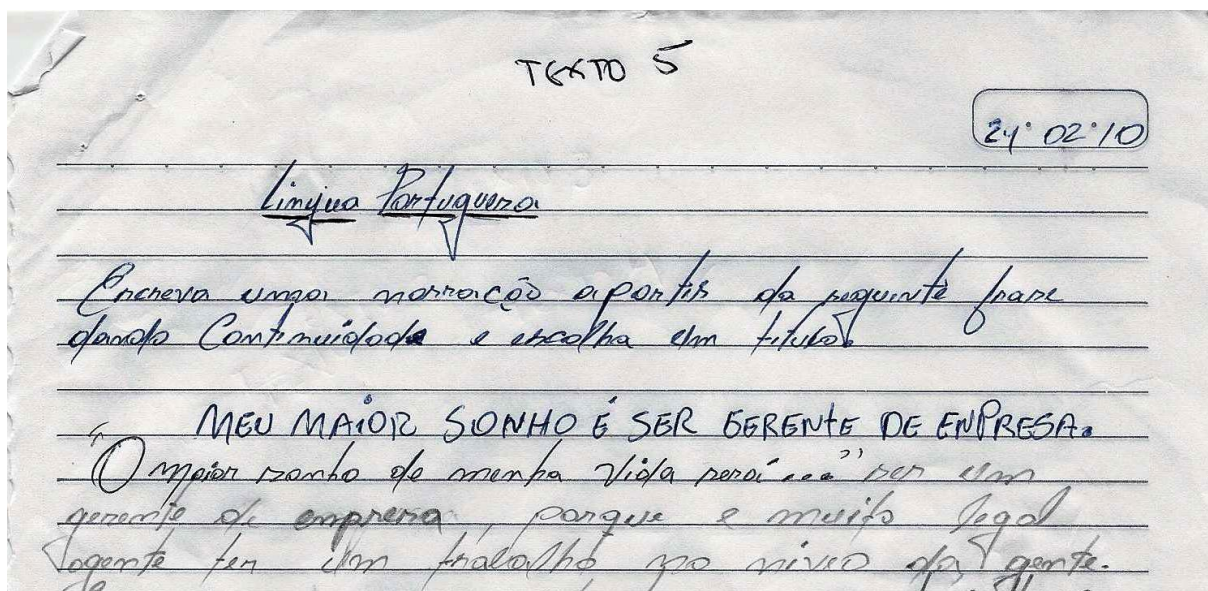 TEXTO 5
24° 02° 10
Língua Portuguesa
Escreva uma narração apartir da seguinte frase
dando Continuidade e escolha um título.
MEU MAIOR SONHO É SER GERENTE DE ENPRESA.
"O maior sonho de minha Vida será..." ser um
gerente de empresa, porque e muito legal
agente ter um trabalho no niveo da gente.